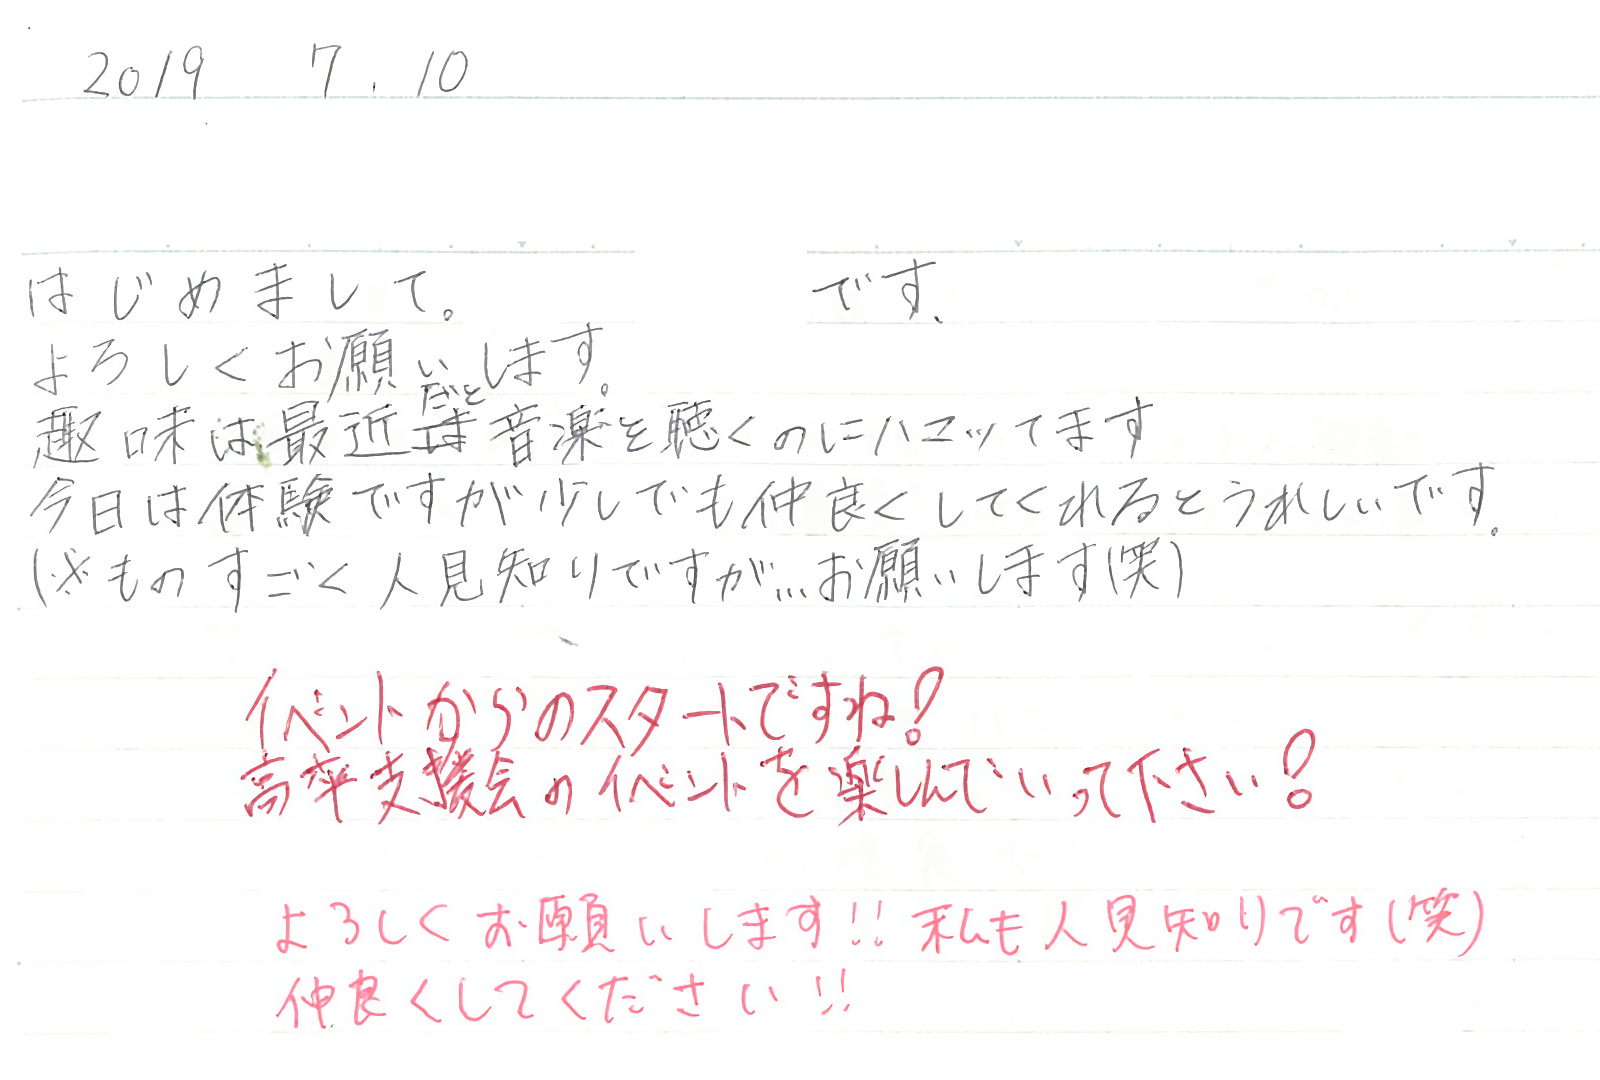 2019 7.10
はじめまして。 です。
よろしくお願いします。
趣味は最近だと音楽を聴くのにハマッてます
今日は体験ですが少しでも仲良くしてくれるとうれしいです。
(※ものすごく人見知りですが...お願いします(笑)
イベントからのスタートですね!
高卒支援会のイベントを楽しんでいって下さい!
よろしくお願いします!! 私も人見知りです(笑)
仲良くしてください!!